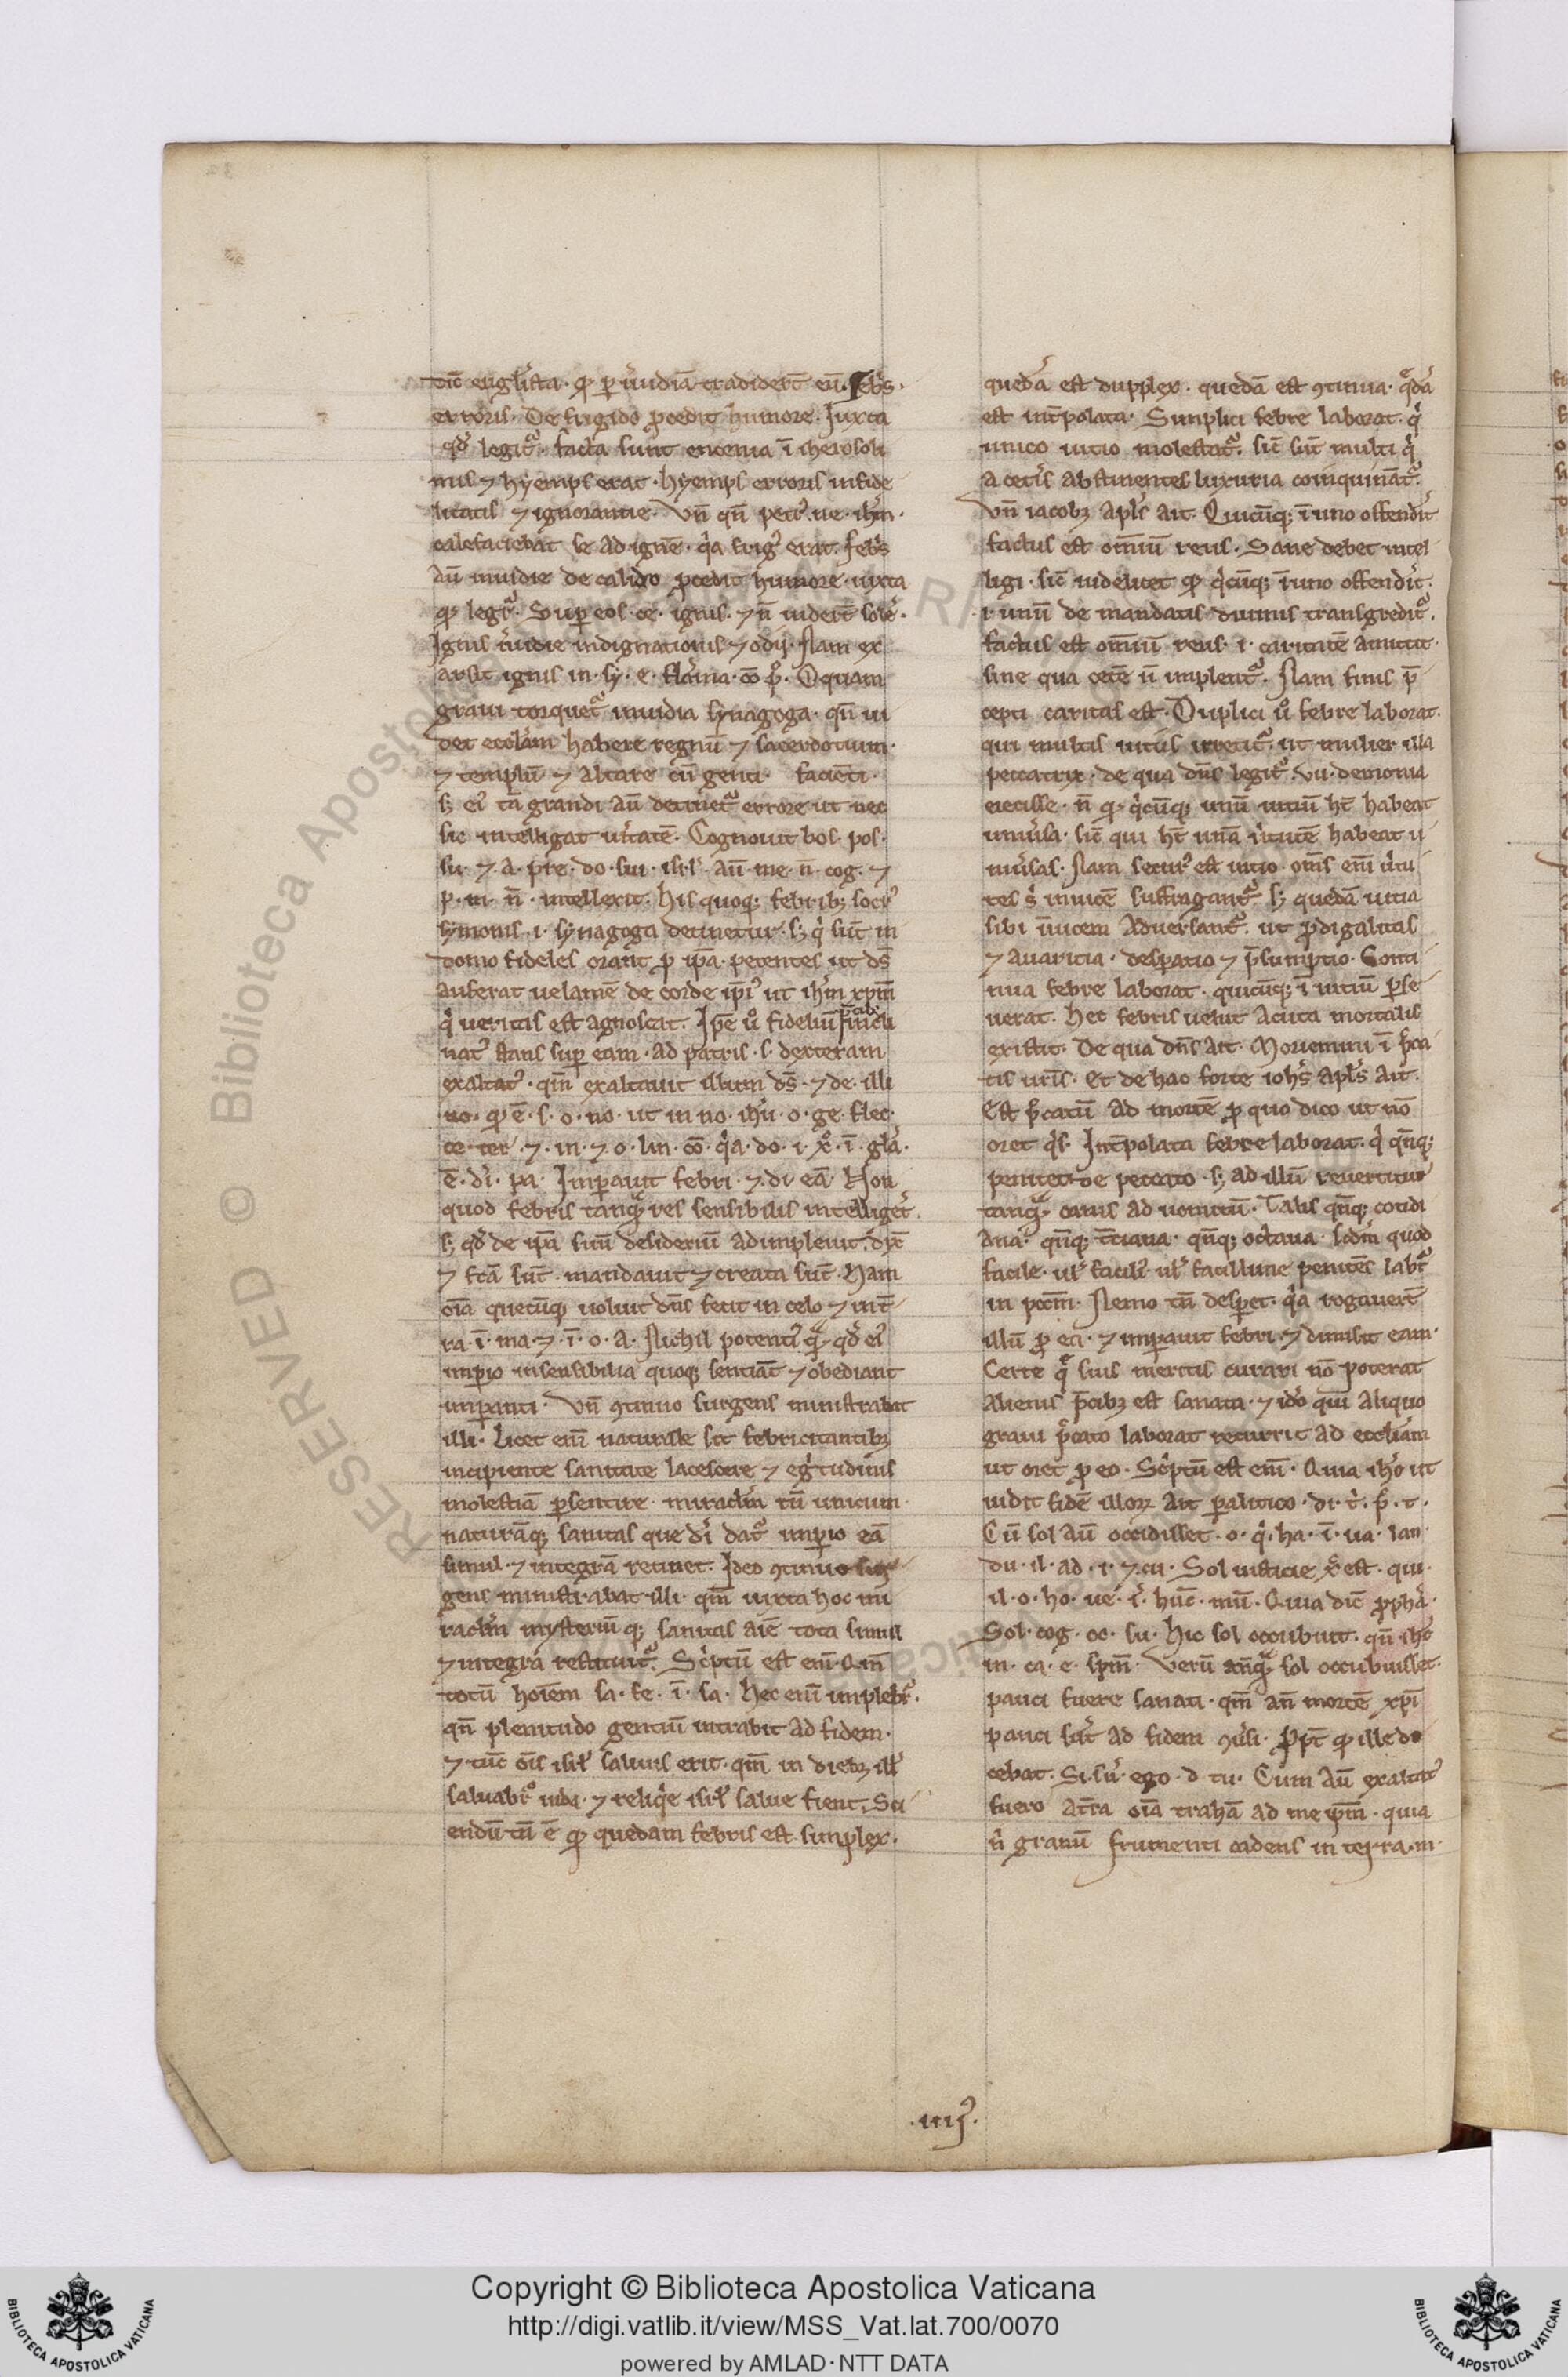 dic̄ eug̃lista· ꝙ ꝑ inuidiā tradiderc̄ eū. Febr̉s·
erroris· De frigido ꝓcedit humore· Iuxta
qd̓ legit᷑. facta sunt encenia ī iherosoli
mis ⁊ hyemps erat· hyemps erroris infide
litatis ⁊ ignorantie· Vn̄ qn̄ petr᷒ ne· ih̄m·
calefaciebat se ad ignē· q̉a frig᷒ erat. febr̉s
aū inuidie de calido ꝓcedit humore· iuxta
ꝙ legit᷑. Super eos· ce· ignis· ⁊ n̄ uider̄t solē·
Ignis inuidie indignationis ⁊ odij· Nam ex
arsit ignis in· sy· e· flāma· cō· p̉· O quam
graui torquet᷑ inuidia synagoga· qn̄ ui
det eccl̄am habere regnū ⁊ sacerdotium·
⁊ templū· ⁊ altare cū genti· facienti·
sꝫ ei᷒ tā grandi aū detinet᷑ errore ut nec
sic intelligat uͥtatē· Cognouit bos· pos·
su· ⁊· a· pre· do· sui· isrl̓· aū· me· n̄· cog· ⁊
p· m· n̄· intellexit· His quoqꝫ febribꝫ socr᷒
symonis· i· synagoga detinetur· sꝫ q̉ sūt in
domo fideles orant ꝓ ip̄a· petentes ut d̄s
auferat uelamē de corde ip̄i᷒ ut ih̄m xp̄m
q̉ ueritas est agnoscat· Ip̄e u̓o fidelium p̄cibꝰ incli
nat᷒ stans sup eam· ad patris· s· dexteram
exaltat᷒· qm̄ exaltauit illum d̄s· ⁊ de· illi
no· ꝙ ē· s· o· no· ut in no· ih̓u· o· ge· flec·
ce· ter· ⁊· in· ⁊· o· lin· cō· q̉a· do· i· x̉· ī· gl̄a·
ē· di̓· pa· Imꝑauit febri· ⁊· di· eā· Non
quod febris tanqᷓ res sensibilis intelliget̓·
sꝫ qd̓ de ip̄a suū desideriū adimpleuit· dix̄
⁊ fc̄a sūt· mandauit ⁊ creata sūt· Nam
oīa quecūqꝫ uoluit dn̄s fecit in celo ⁊ in t̄
ra· ī· ma· ⁊· ī· o· a· Nichil potenti᷒ qᷓ qd̓ ei᷒
imꝑio insensibilia quoqꝫ sentiāt ⁊ obediant
imꝑanti· Vn̄ ꝯtinuo surgens ministrabat
illi· Licet enī naturale sit febricitantibꝫ
incipiente sanitate lacescere ⁊ egri̓tudinis
molestiā ꝑsentire· miracl̄m tn̄ unicum·
naturāqꝫ sanitas que di̓ dat᷑ imꝑio eā
simul· ⁊ integrā retinet· Ideo ꝯtinuo sur
gens ministrabat illi· qm̄ iuxta hoc mi
racl̄m mysteriū qꝫ sanitas aīe tota simul
⁊ integra restituit᷑· Sc̓ptū est enī· Qm̄
totū hoīem sa· fe· ī· sa· Hec enī implebr᷑·
qn̄ plenitudo gentiū intrabit ad fidem·
⁊ tūc oīs isrl̓ saluus erit· qm̄ in diebꝫ ill᷒
saluabr᷑ iuda· ⁊ reliq̓e isrl̓ salue fient· Sci
endū tn̄ ē ꝙ quedam febris est simplex·
quedā est dupplex· quedā est ꝯtinua· qᷓdā
est int̄polata· Simplici febre laborat· q̓
unico uitio molestat᷑· sic̄ sūt multi q̓
a cet̓is abstinentes luxuria coinquināt᷑·
Vn̄ iacobꝫ apl̓s ait· Quicūqꝫ ī uno offendit̓
factus est omniū reus· Sane debet intel
ligi· sic̄ uidelicet ꝙ q̓cūqꝫ ī uno offendit̓·
i· unū de mandatis diuinis transgredit᷑·
factus est omniū reus· i· caritatē amittit·
sine qua cetē n̄ implent᷑· Nam finis p̄
cepti caritas est· Duplici u̓o febre laborat·
qui multis uitiis irretit᷑· ut mulier illa
peccatrix· de qua dn̄s legit᷑ ·vii· demonia
eiecisse· n̄ ꝙ q̓cūqꝫ unū uitiū ht̄ habeat
uniu̓sa· sic̄ qui ht̄ unā u̓tutē habeat u
niu̓sas· Nam secur᷒ est uitio· om̄s enī u̓tu
tes s̓ inuicē suffragant᷑· sꝫ quedā uitia
sibi inuicem aduersant᷑· ut ꝓdigalitas
⁊ auaritia· desꝑatio ⁊ p̄sumptio· Conti
nua febre laborat· quicūqꝫ ī uitiū ꝑse
uerat· Hec febris uelut acuta mortalis
existit· De qua dn̄s ait· Moriemini ī p̄cca
tis ur̄is· Et de hac forte ioh̓s apl̓s ait·
Est p̄ccatū ad mortē ꝓ quo dico ut nō
oret q̓s· Int̄polata febre laborat· q̓ qn̄qꝫ
penitet de peccato· sꝫ ad illū reuertitur
tanqᷓ canis ad uomitū· Talis qn̄qꝫ cotidi
ana· qn̄qꝫ t̄ciana· qn̄qꝫ octaua· scdm̄ quod
facile· ul̓ facili᷒· ul̓ facillime penitēs labit᷑
in pccm̄· Nemo tn̄ desperet· q̓a rogauerūt
illū ꝓ ea· ⁊ imꝑauit febri· ⁊ dimisit eam·
Certe qᷓ suis meritis curari nō poterat
alienis p̄cibꝫ est sanata· ⁊ ido̓ qui aliquo
graui p̄ccato laborat recurrit ad eccl̄iam
ut oret ꝓ eo· Sc̓ptū est enī· Quia ih̓c ut
uidit fidē illorꝫ ait ꝑalitico· di· t̓· p̓· t·
Cū sol aū occidisset· o· q̓· ha· ī· ua· lan
du· il· ad· i· ⁊· cu· Sol iusticie x̓ est· qui·
il· o· ho· ue· i̓· hūc· mū· Quia dic̄ ꝓpha̓·
Sol· cog· oc· su· Hic sol occubuit· qn̄ ih̓c
in· ca· e· spm̄· Verū anqᷓ sol occubuisset·
pauci fuere sanati· qm̄ an̄ mortē xp̄i
pauci sūt ad fidem ꝯu̓si· Ꝓpt̄ ꝙ ille di
cebat· Si· su̓· ego· d· tu· Cum aū exaltat᷒
fuero a tr̄a oīa trahā ad me ip̄m· quia
n̓ granū frumenti cadens in terra· m·
·iiij᷒·
RESERVED © Biblioteca Apostolica Vaticana
Copyright © Biblioteca Apostolica Vaticana
http://digi.vatlib.it/view/MSS_Vat.lat.700/0070
powered by AMLAD · NTT DATA
BIBLIOTECA APOSTOLICA VATICANA
BIBLIOTECA APOSTOLICA VATICANA